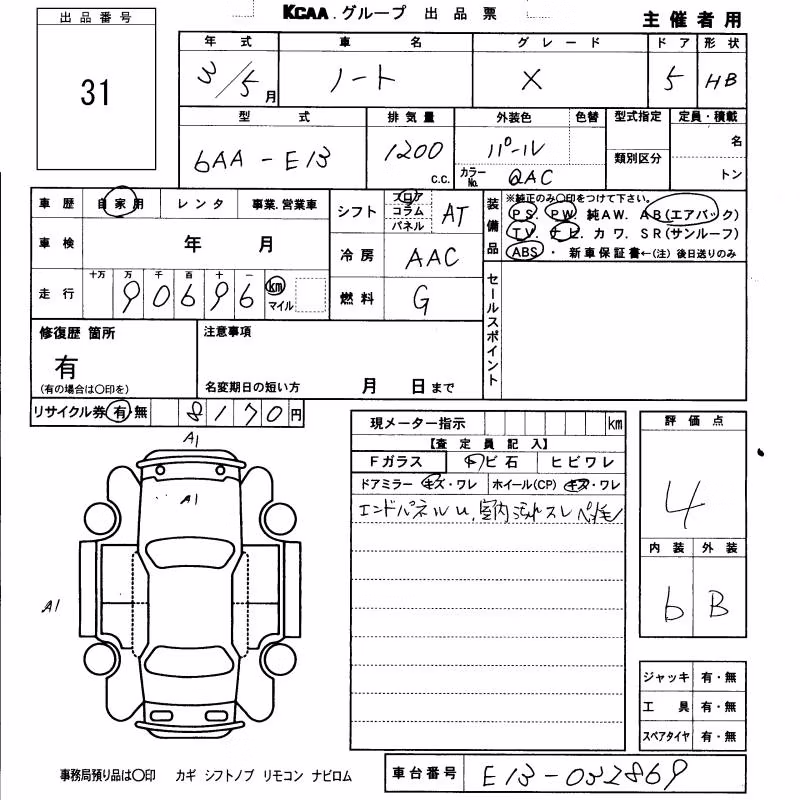 KCAA.グループ 出品票
主催者用
出品番号
31
年式 車名 グレード ドア 形状
3/5月 ノート X 5 HB
型式 排気量 外装色 色替 型式指定 定員・積載
6AA-E13 1200 c.c. パール 名
カラーNo. QAC 類別区分 トン
車歴 自家用 レンタ 事業.営業車
シフト フロア コラム パネル AT
装備品
※純正のみ○印をつけて下さい。
PS. PW. 純AW. AB(エアバック)
TV. ナビ. カワ. SR(サンルーフ)
ABS・ 新車保証書←(注)後日送りのみ
車検 年 月
冷房 AAC
走行 十万 万 千 百 十 一
90696 km マイル
燃料 G
セールスポイント
修復歴 箇所
有
(有の場合は○印を)
注意事項
名変期日の短い方 月 日まで
リサイクル券 有・無 8170円
現メーター指示 km
【査定員記入】
Fガラス トビ石 ヒビワレ
ドアミラー キズ・ワレ ホイール(CP) キズ・ワレ
エンドパネルU,室内汚れスレ ペット毛
評価点
4
内装 外装
6 B
A1
A1
A1
ジャッキ 有・無
工具 有・無
スペアタイヤ 有・無
事務局預り品は○印 カギ シフトノブ リモコン ナビロム
車台番号 E13-032869